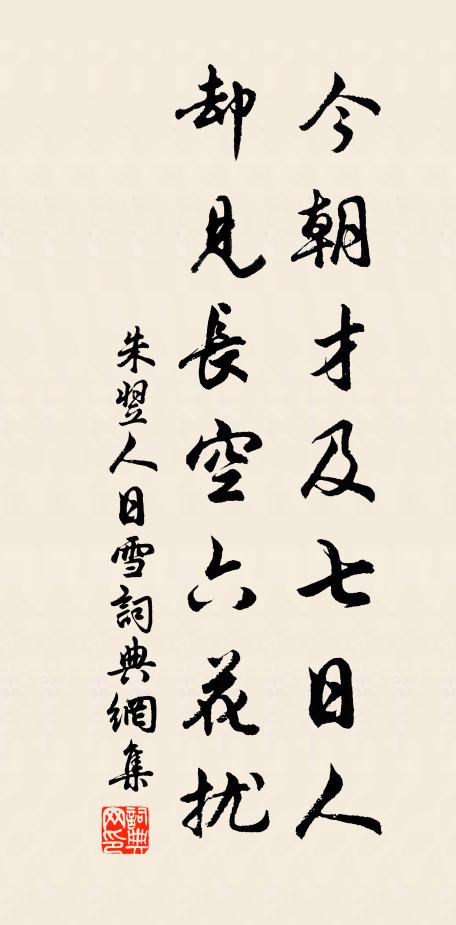 今朝才及七日人
却見長空六花扰
朱翌人日雪詞典網集
詞典网印